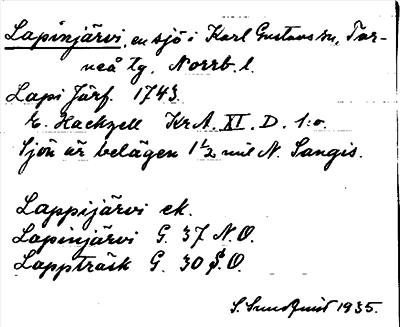 Lapinjärvi, en sjö i Karl Gustavs sn, Tor-
neå tg. Norrb. l.
Lapi Järf. 1743.
E. Hackzell KrA. XI. D. 1:o.
Sjön är belägen 1 1/2 mil N. Sangis.
Lappijärvi ek.
Lapinjärvi G. 37 N.O.
Lappträsk G. 30 S.O.
S. Sundqvist 1935.